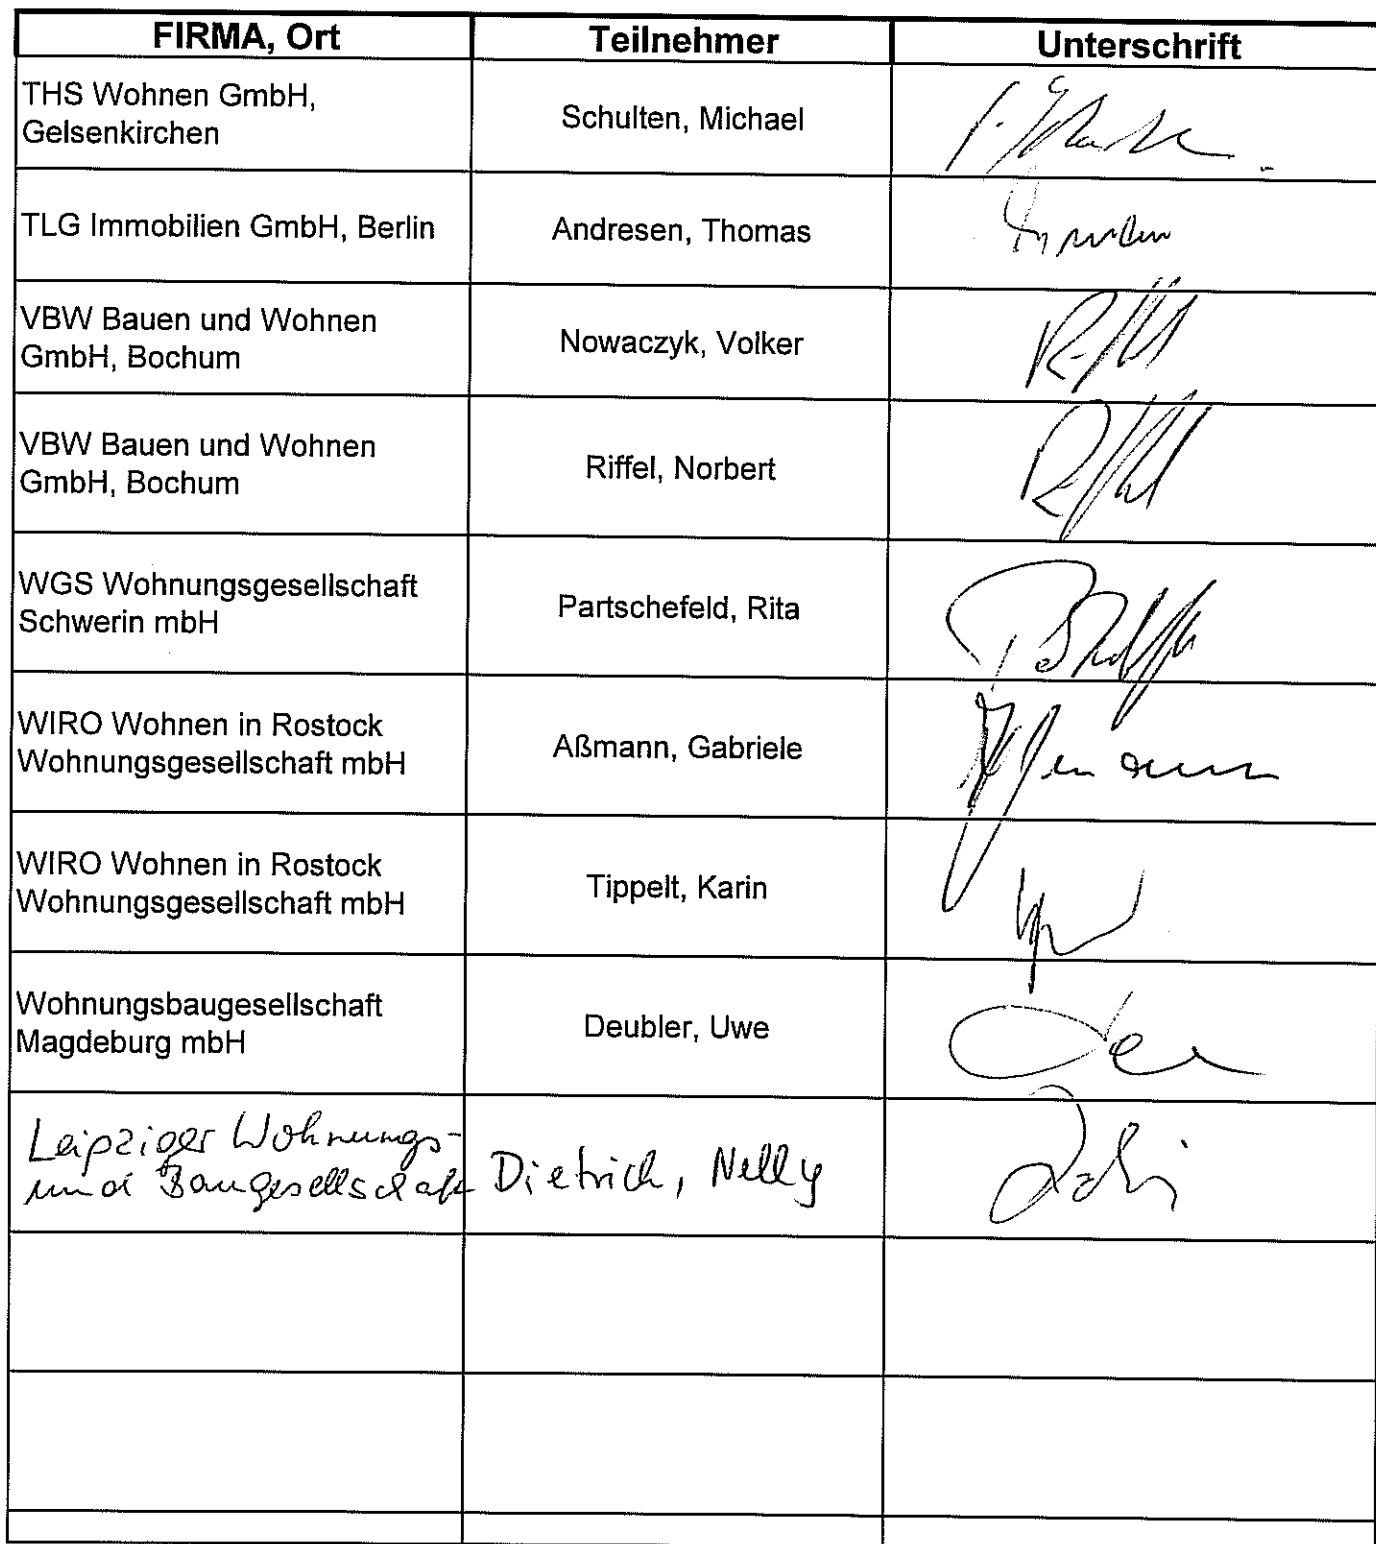 FIRMA, Ort Teilnehmer Unterschrift
THS Wohnen GmbH,
Gelsenkirchen
Schulten, Michael
TLG Immobilien GmbH, Berlin
Andresen, Thomas
VBW Bauen und Wohnen
GmbH, Bochum
Nowaczyk, Volker
VBW Bauen und Wohnen
GmbH, Bochum
Riffel, Norbert
WGS Wohnungsgesellschaft
Schwerin mbH
Partschefeld, Rita
WIRO Wohnen in Rostock
Wohnungsgesellschaft mbH
Aßmann, Gabriele
WIRO Wohnen in Rostock
Wohnungsgesellschaft mbH
Tippelt, Karin
Wohnungsbaugesellschaft
Magdeburg mbH
Deubler, Uwe
Leipziger Wohnungs-
und Baugesellschaft
Dietrich, Nelly